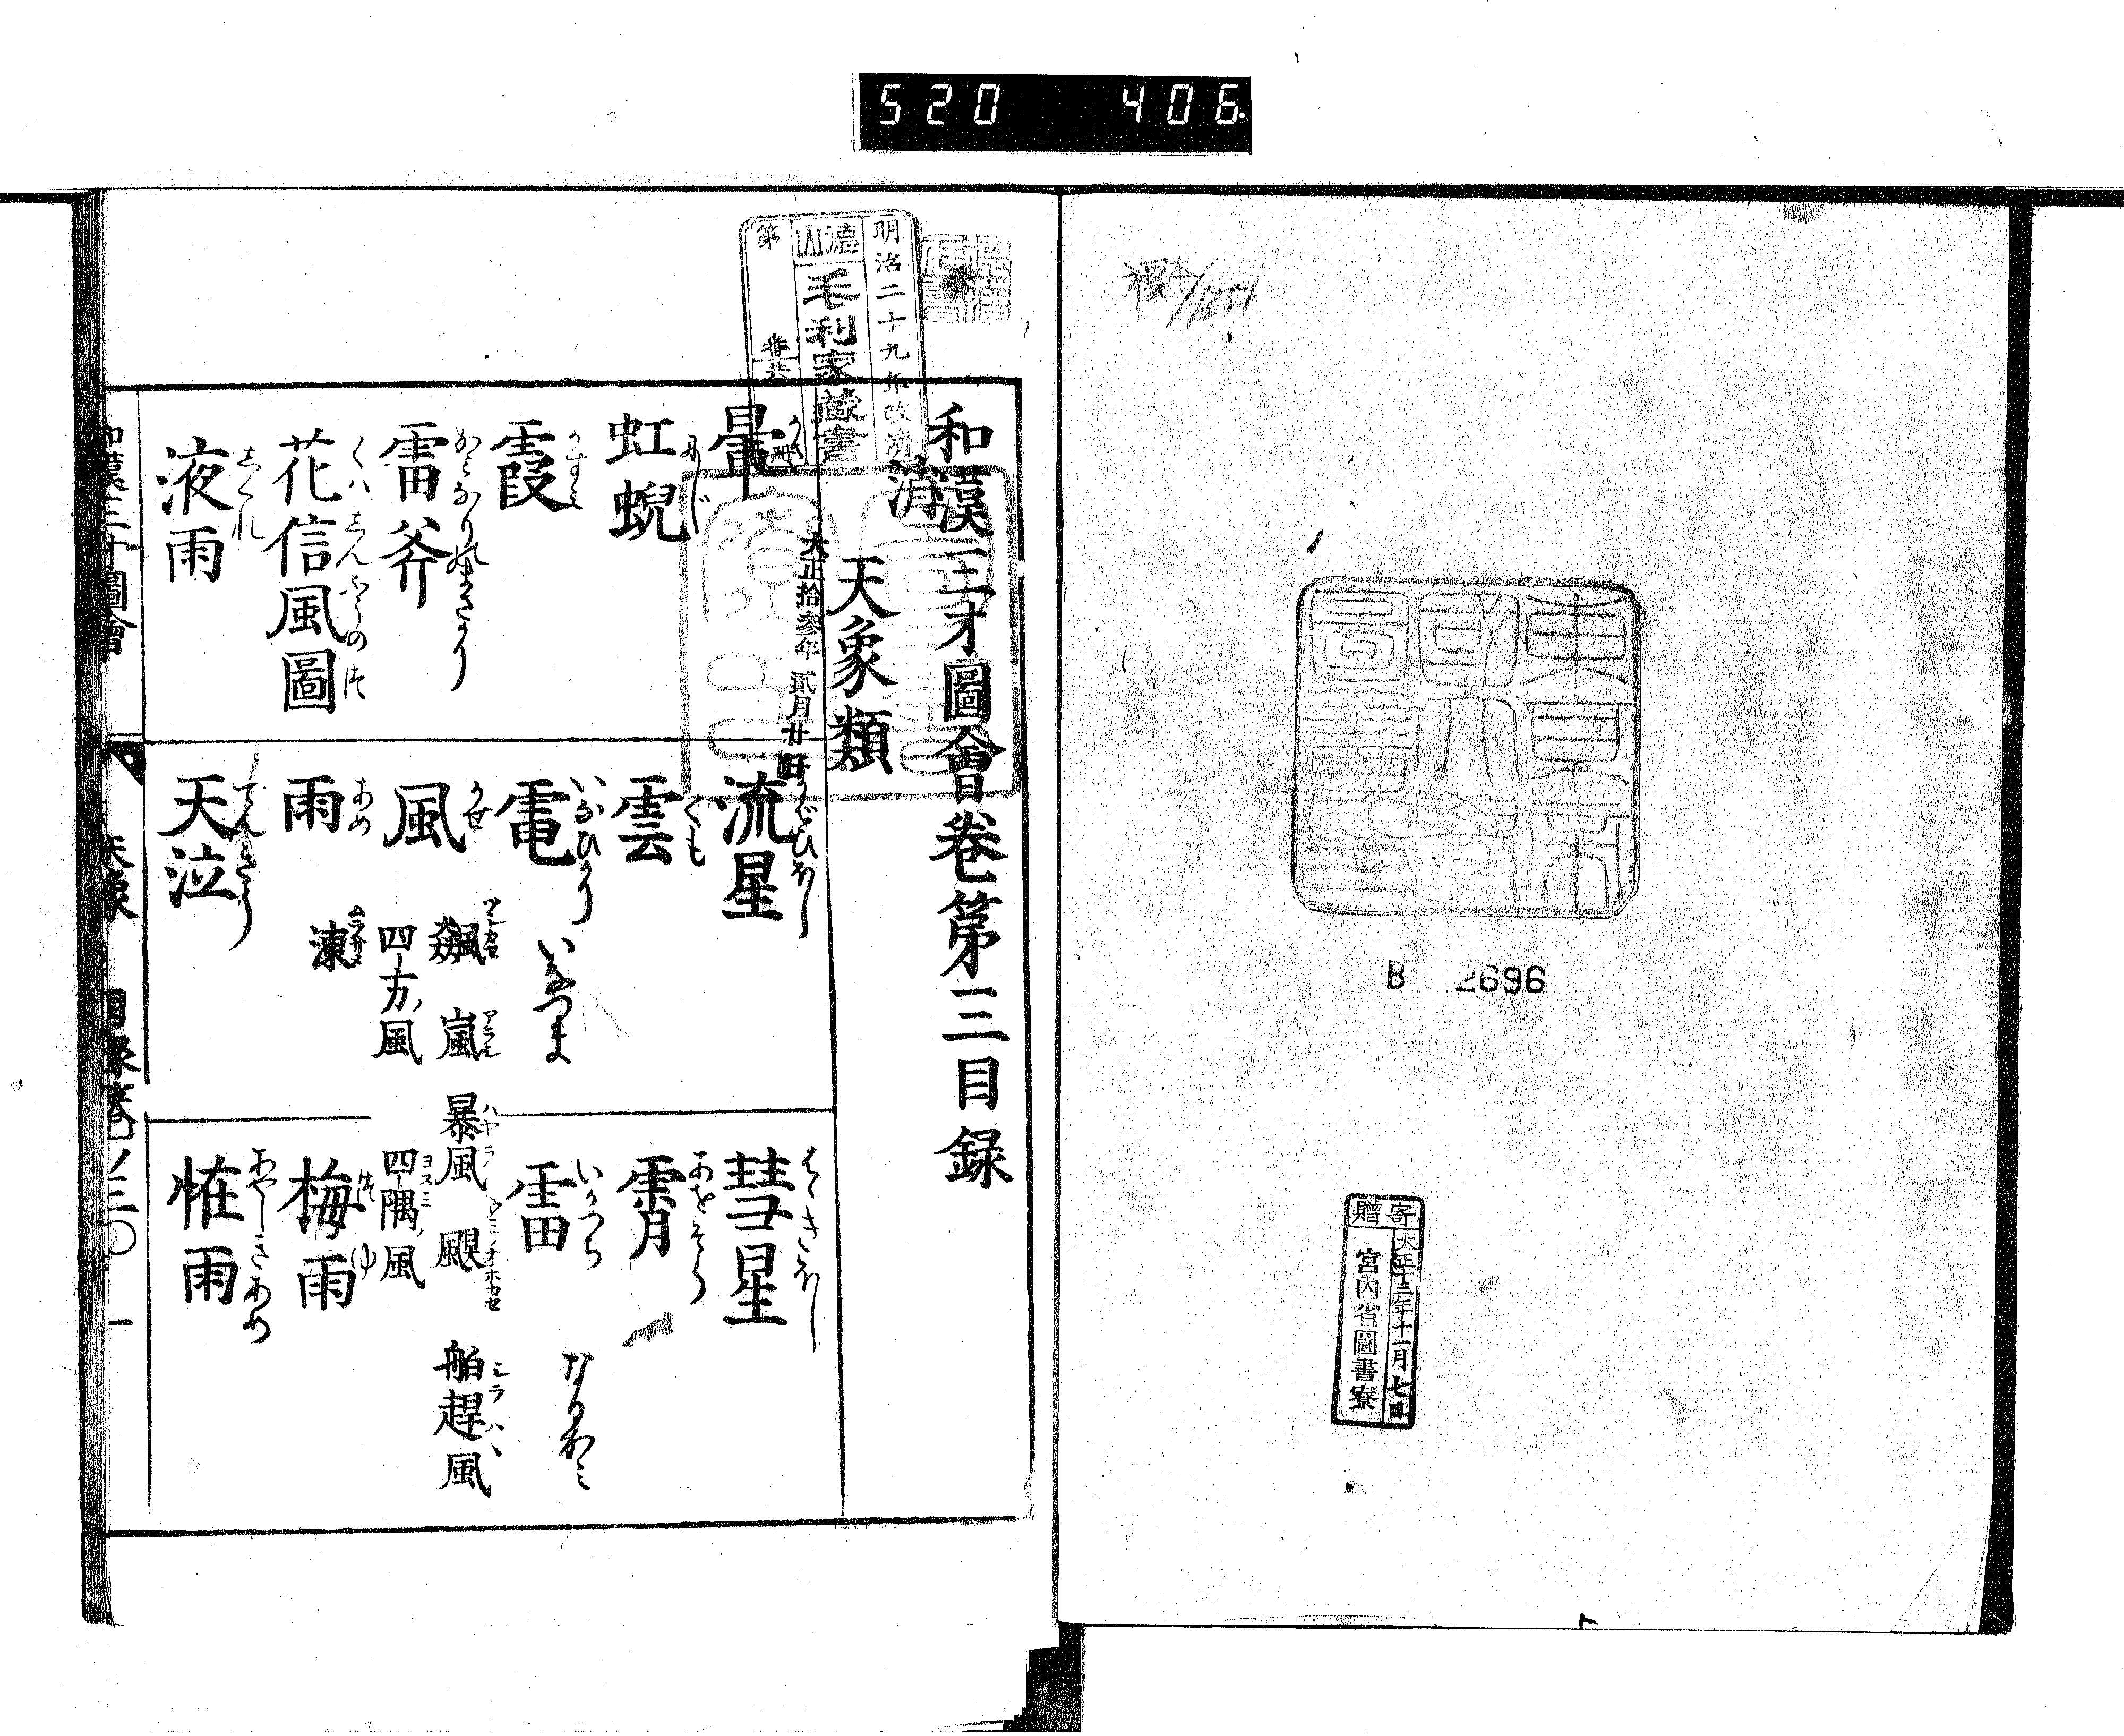 520 406
東京帝
國大學
圖書印
B 2696
寄贈
大正十三年十一月七日
宮内省圖書寮
明治二十九年改濟
德山
毛利家藏書
第
番共
冊
消
大正拾参年貳月廿
和漢三才圖會卷第三目録
天象類
暈
流星
彗星
はゝきぼし
虹蜺
にじ
雲
くも
霄
おほそら
霞
かすみ
電
いなびかり
いなつま
雷
いかつち
なるかみ
雷斧
かみなりのまさかり
風
かぜ
飈
ツムシカセ
嵐
アラシ
暴風
ハヤテ
颶
ウミノオホカセ
舶趠風
四方ノ風
四隅ノ風
ヨスミ
花信風圖
くはしんふうのづ
雨
あめ
涷
ムラサメ
梅雨
つゆ
液雨
しぐれ
天泣
恠雨
あやしきあめ
和漢三才圖會
天象
目録卷ノ三〇
一